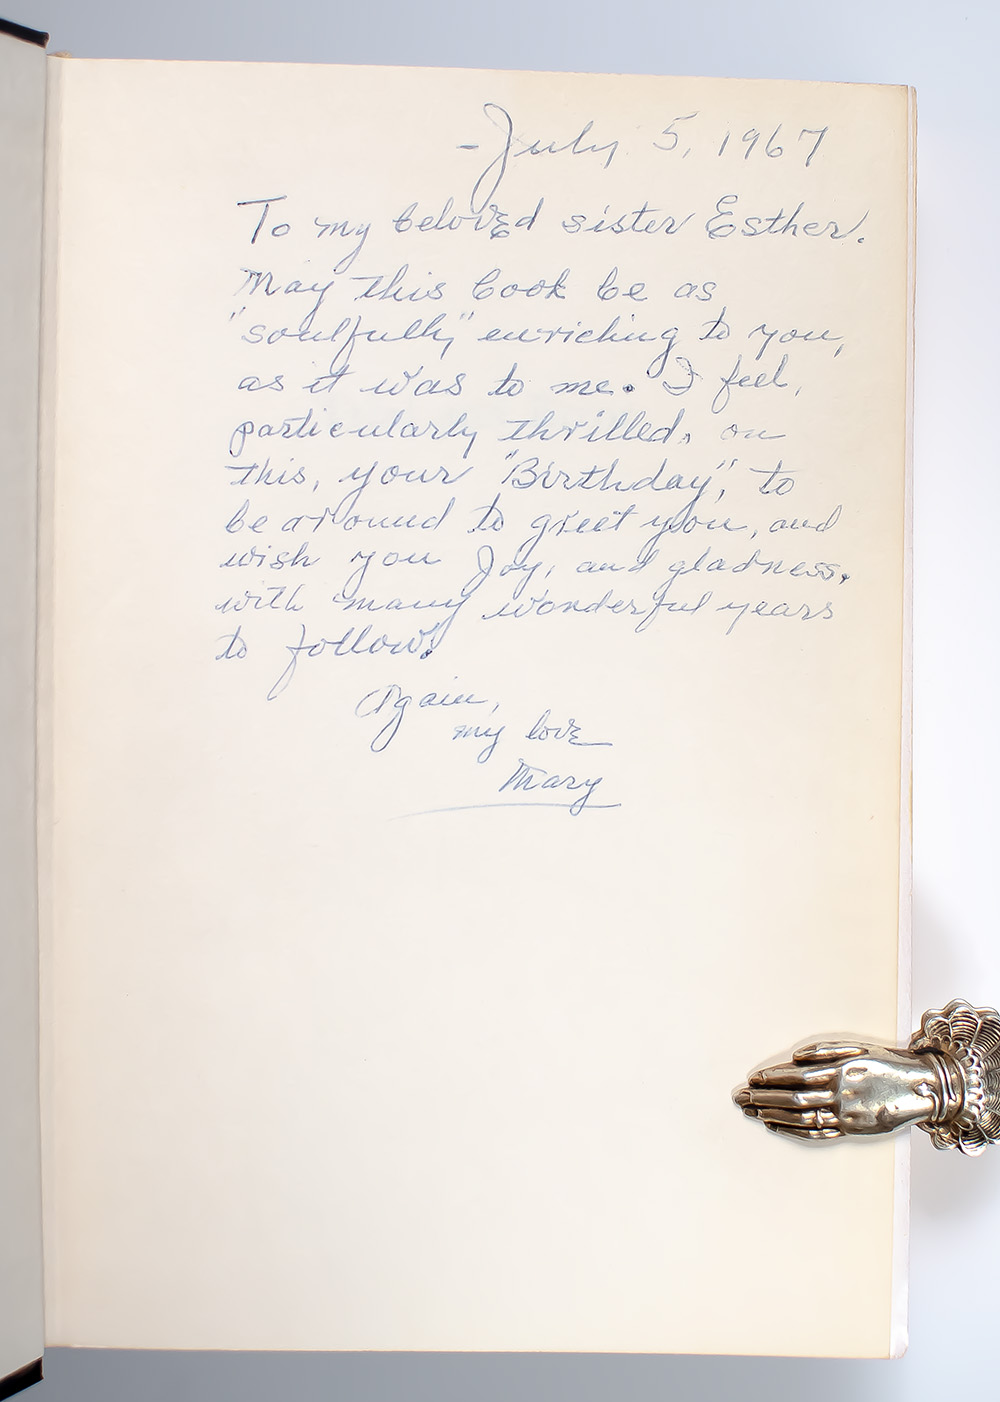 - July 5, 1967
To my beloved sister Esther.
May this book be as
"soulfully" enriching to you,
as it was to me. I feel,
particularly thrilled, on
this, your "Birthday", to
be around to greet you, and
wish you Joy, and gladness,
with many wonderful years
to follow.
Again,
my love
Mary